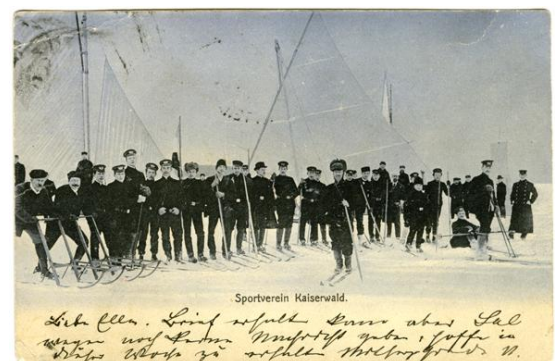 Sportverein Kaiserwald.
Liebe Ella. Brief erhalten kann aber Sal
wegen noch keine Nachricht geben, hoffe in
dieser Woche zu erhalten